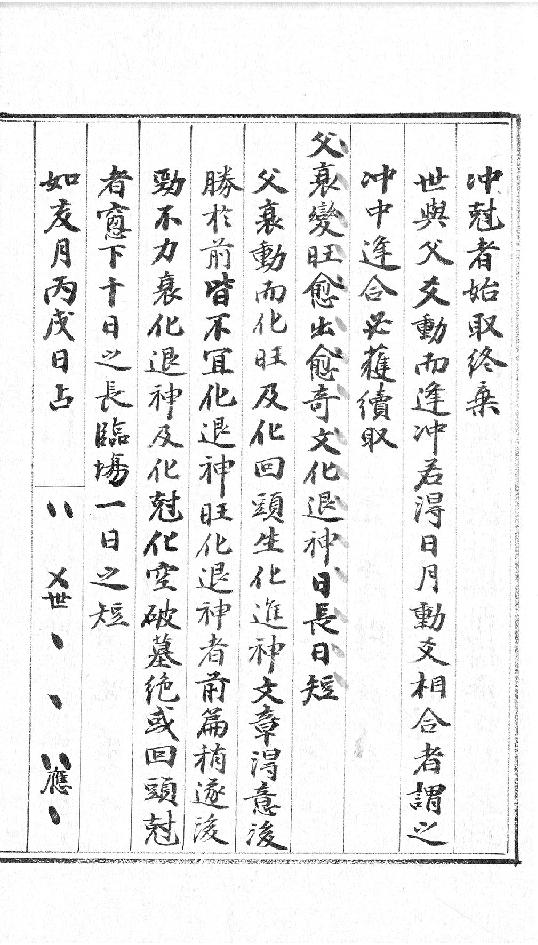 冲尅者始取終棄
世與父爻動而逢冲若得日月動爻相合者謂之
冲中逢合必獲續取
父衰變旺愈出愈奇文化退神日長日短
父衰動而化旺及化回頭生化進神文章得意後
勝於前皆不宜化退神旺化退神者前篇稍遂後
勁不力衰化退神及化尅化空破墓絶或回頭尅
者窻下十日之長臨塲一日之短
如亥月丙戌日占
世
應